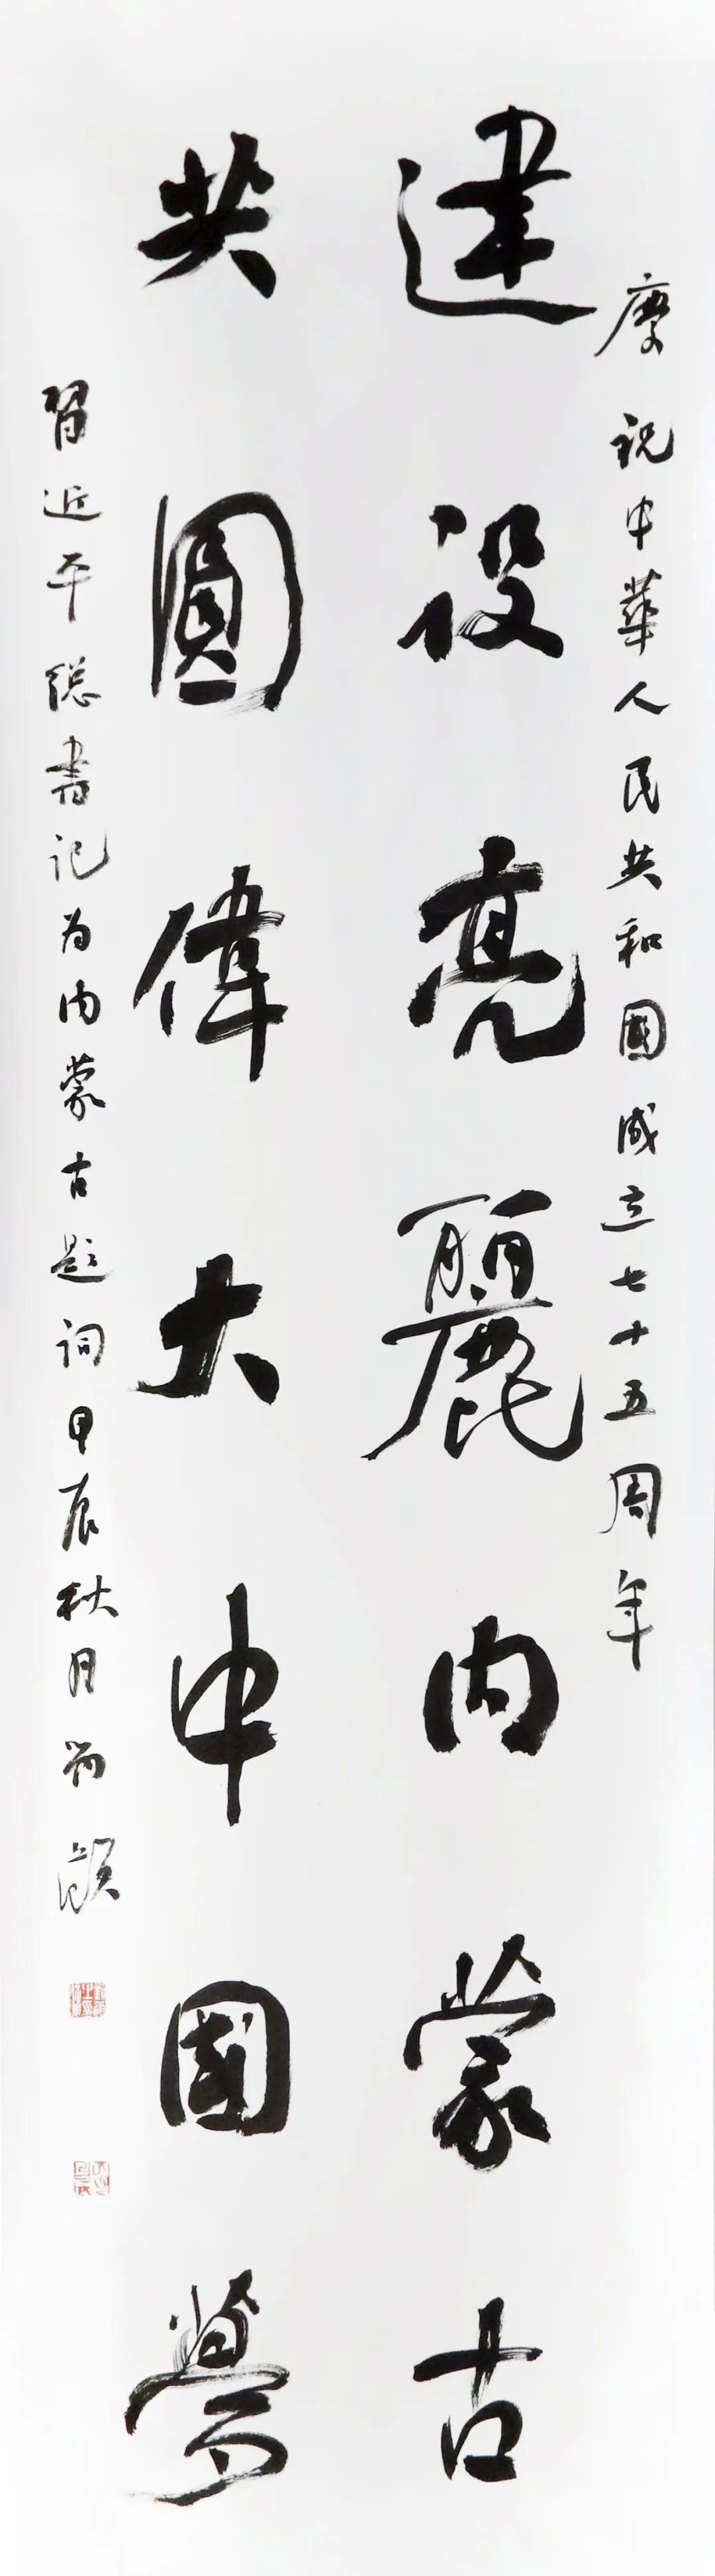 慶祝中華人民共和國成立七十五周年
建設亮麗內蒙古
共圓偉大中國夢
習近平總書記为內蒙古題詞甲辰秋月